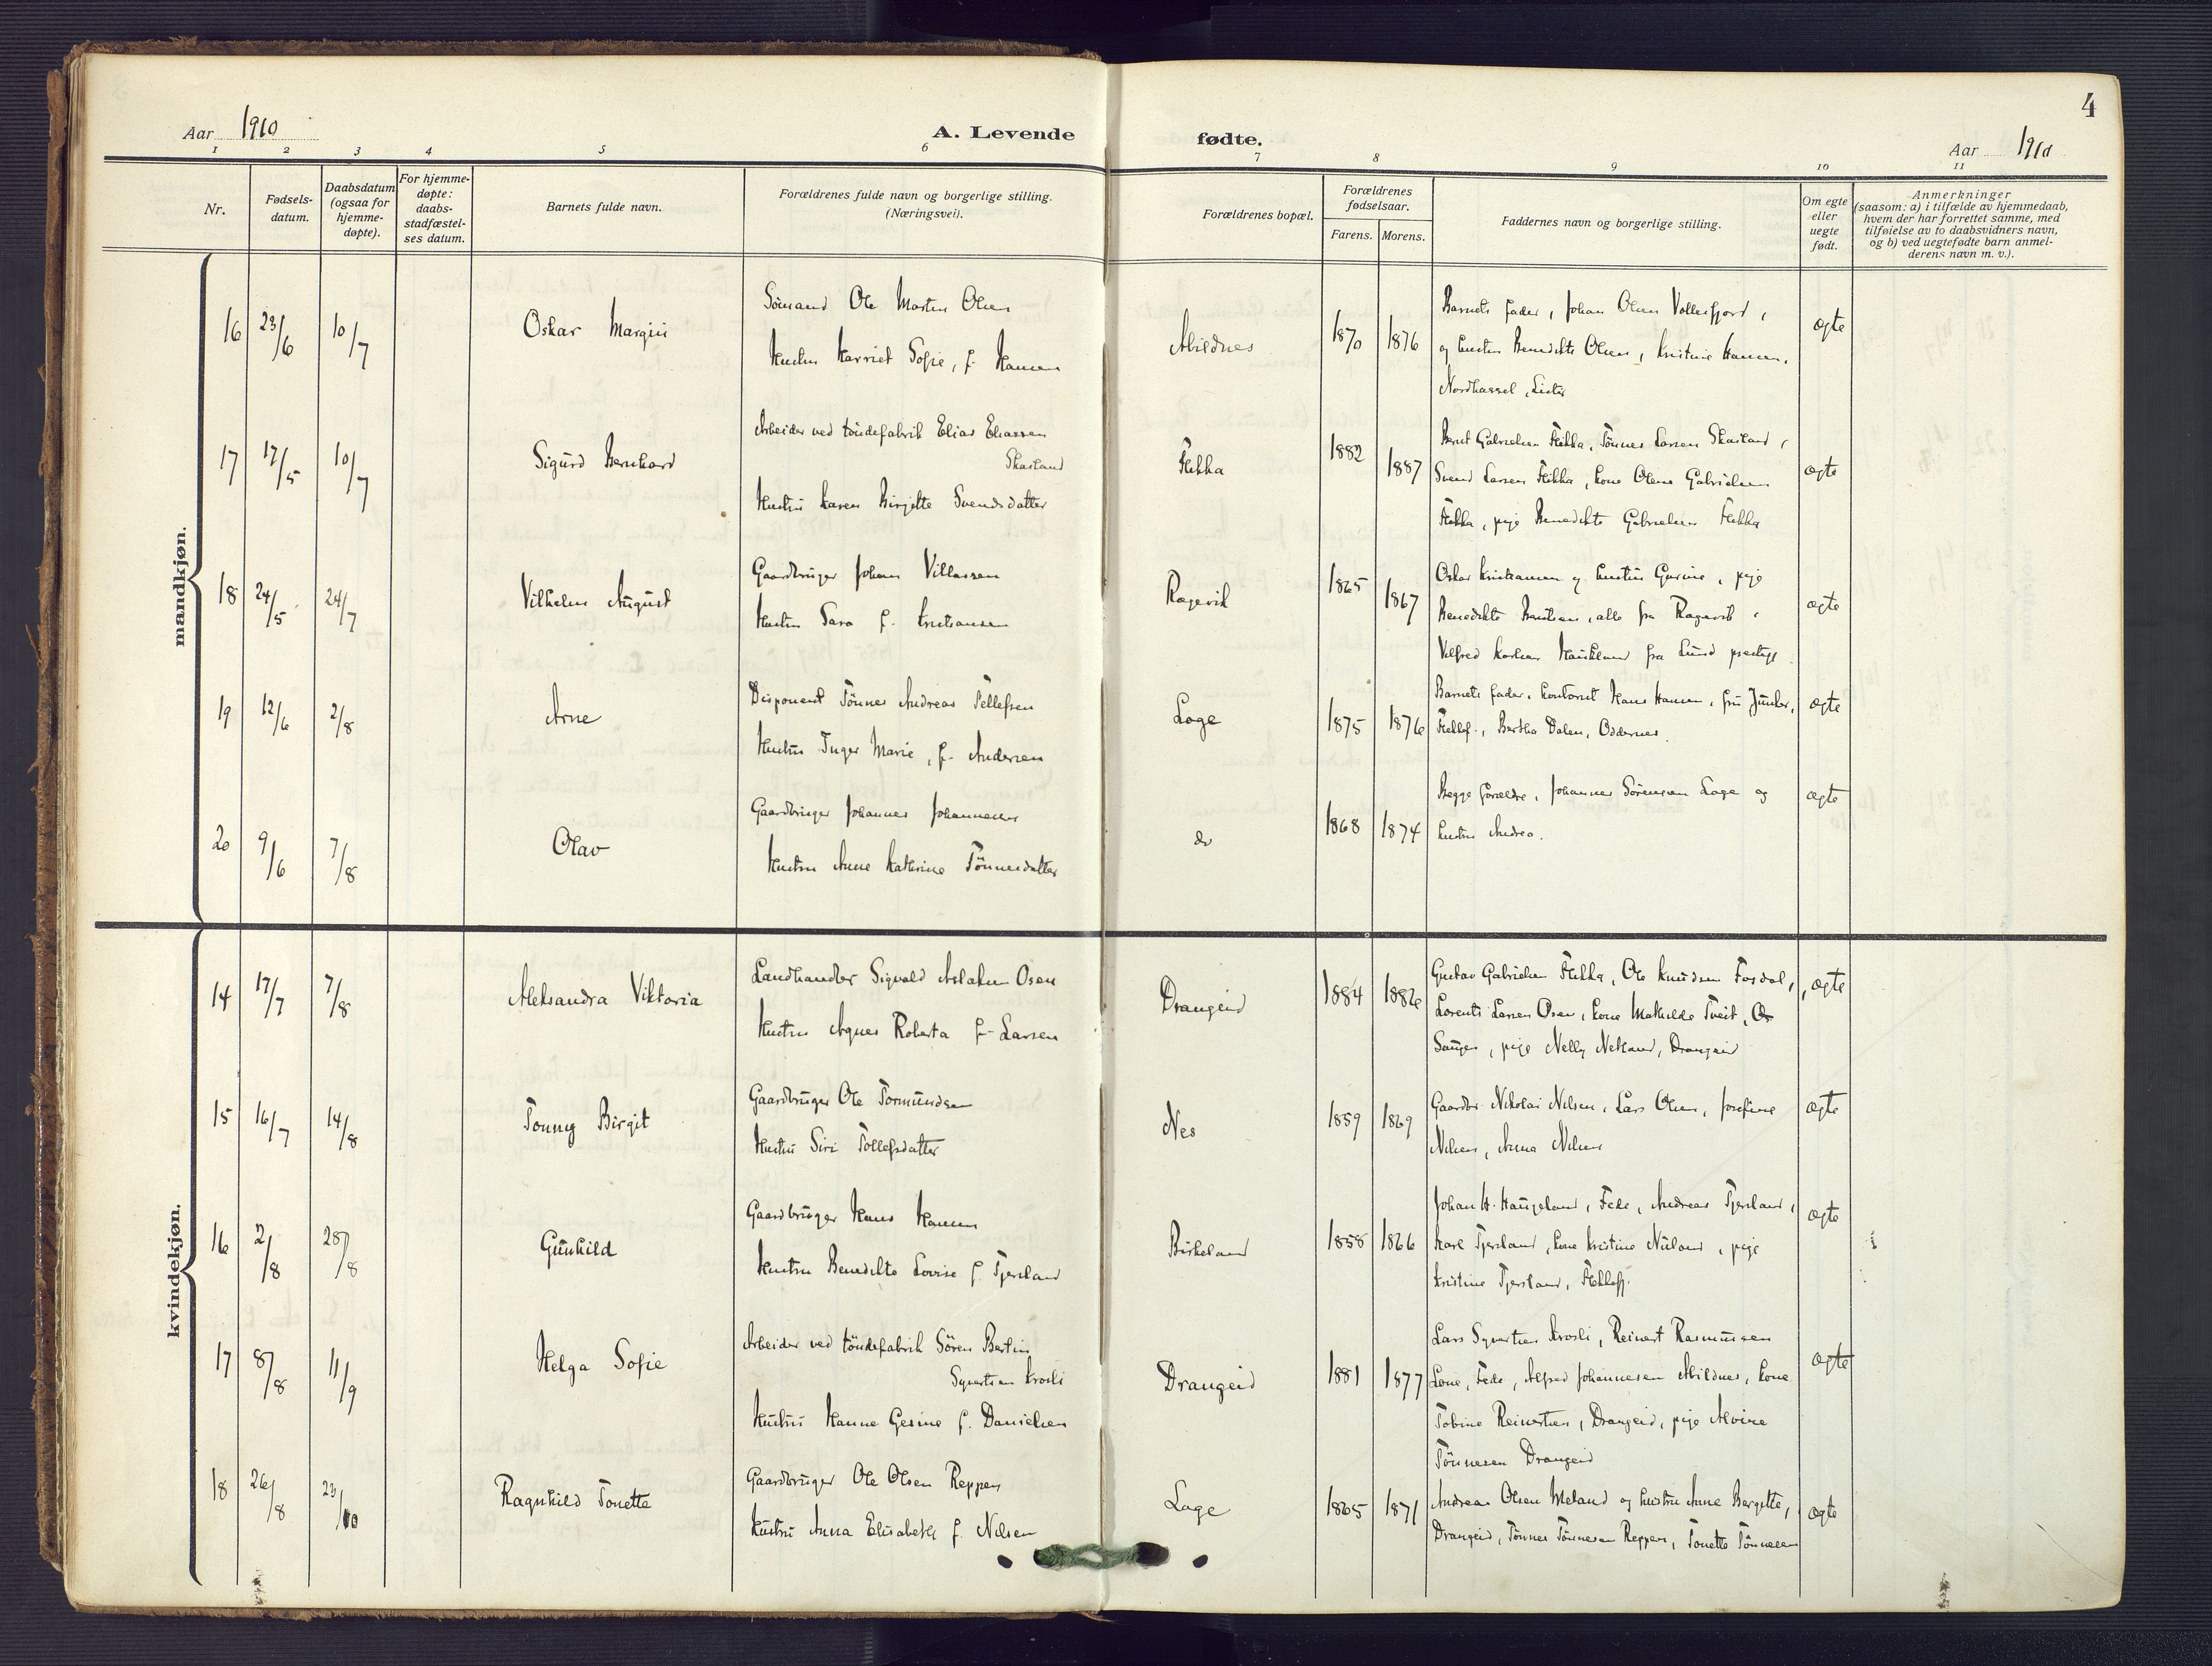 4
Aar 1910
A. Levende
fødte.
Aar 1910
1 2 3 4 5 6 7 8 9 10 11
Nr.
Fødsels-
datum.
Daabsdatum
(ogsaa for
hjemme-
døpte).
For hjemme-
døpte:
daabs-
stadfæstel-
ses datum.
Barnets fulde navn.
Forældrenes fulde navn og borgerlige stilling.
(Næringsvei).
Forældrenes bopæl.
Forældrenes
fødselsaar.
Farens.
Morens.
Faddernes navn og borgerlige stilling.
Om egte
eller
uegte
født.
Anmerkninger
(saasom: a) i tilfælde av hjemmedaab,
hvem der har forrettet samme, med
tilføielse av to daabsvidners navn,
og b) ved uegtefødte barn anmel-
derens navn m. v.).
mandkjøn.
16 23/6 10/7 Oskar Margin
Sømand Ole Martin Olsen
Hustru Harriet Sofie, f. Hansen
Abildnes 1870 1876
Barnets fader, Johan Olsen Vollesfjord,
og hustru Benedikte Olsen, Kristine Hansen,
Nordhassel, Lister
egte
17 17/5 10/7 Sigurd Bernhard
Arbeider ved tøndefabrik Elias Eliassen
Skarland
Hustru Karen Birgitte Svendsdatter
Flikka 1882 1887
Bernt Gabrielsen Flikka, Tønnes Larsen Skarland,
Svend Larsen Flikka, kone Olene Gabrielsen
Flikka, pige Benedikte Gabrielsen Flikka
egte
18 24/5 24/7 Vilhelm August
Gaardbruger Johan Villassen
Hustru Sara f. Kristiansen
Rægevik 1865 1867
Oskar Kristiansen og hustru Gurine, pige
Benedikte Berntsen, alle fra Rægevik,
Vilfred Karlsen Haukland fra Lund prestgj.
egte
19 12/6 2/8 Arne
Disponent Tønnes Andreas Tellefsen
Hustru Inger Marie, f. Andersen
Loge 1875 1876
Barnets fader, kontorist Hans Hansen, fru Junker,
Flekkef., Bertha Dalen, Oddernes.
egte
20 9/6 7/8 Olav
Gaardbruger Johannes Johannesen
Hustru Anne Kathrine Tønnesdatter
do 1868 1874
Begge forældre, Johannes Sørensen Loge og
hustru Andrea.
egte
kvindekjøn.
14 17/7 7/8 Aleksandra Viktoria
Landhandler Sigvald Aslaksen Osen
Hustru Agnes Roberta f. Larsen
Drangeid 1884 1886
Gustav Gabrielsen Flikka, Ole Knudsen Fosdal,
Lorents Larsen Osen, kone Mathilde Tveit, Os
pige Nelly Netland, Drangeid
egte
15 16/7 14/8 Tonny Birgit
Gaardbruger Ole Tormundsen
Hustru Siri Tollefsdatter
Nes 1859 1869
Gaardbr. Nikolai Nilsen, Lars Olsen, Josefine
Nilsen, Anna Nilsen
egte
16 2/8 28/8 Gunhild
Gaardbruger Hans Hansen
Hustru Benedikte Lovise f. Tjersland
Birkeland 1858 1866
Johan H. Haugeland, Fede, Andreas Tjersland,
Karl Tjersland, kone Kristine Nuland, pige
Kristine Tjersland, Flekkefj.
egte
17 8/8 11/9 Helga Sofie
Arbeider ved tøndefabrik Søren Bertin
Syvertsen Krosli
Hustru Hanne Gesine f. Danielsen
Drangeid 1881 1877
Lars Syvertsen Krosli, Reinert Rasmussen
Lone, Fede, Alfred Johannesen Abildnes, kone
Tobine Reinertsen, Drangeid, pige Alvine
Tønnesen Drangeid
egte
18 26/8 23/10 Ragnhild Tonette
Gaardbruger Ole Olsen Reppen
Hustru Anna Elisabeth f. Nilsen
Loge 1865 1871
Andreas Olsen Meland og hustru Anne Bergitte,
Drangeid, Tønnes Tønnesen Reppen, Tonette Tønnesen
egte